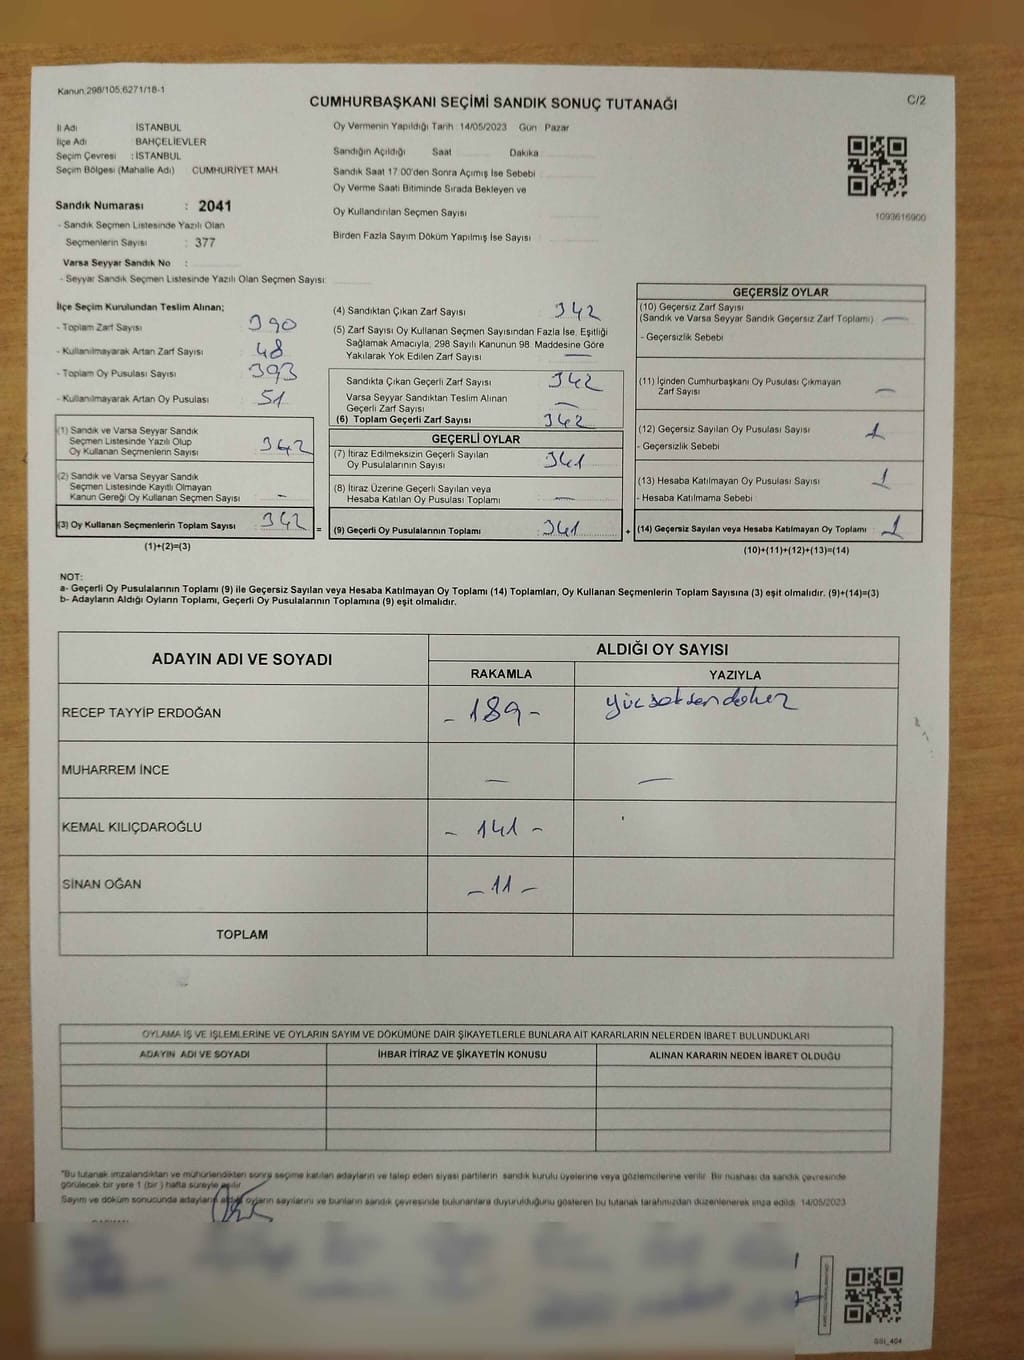 Kanun:298/105,6271/18-1
CUMHURBAŞKANI SEÇİMİ SANDIK SONUÇ TUTANAĞI
C/2
İl Adı İSTANBUL
İlçe Adı BAHÇELİEVLER
Seçim Çevresi : İSTANBUL
Seçim Bölgesi (Mahalle Adı) CUMHURİYET MAH.
Oy Vermenin Yapıldığı Tarih :14/05/2023 Gün Pazar
Sandığın Açıldığı Saat Dakika
Sandık Saat 17.00'den Sonra Açımış İse Sebebi
Oy Verme Saati Bitiminde Sırada Bekleyen ve
Oy Kullandırılan Seçmen Sayısı
Birden Fazla Sayım Döküm Yapılmış İse Sayısı
1093616900
Sandık Numarası : 2041
- Sandık Seçmen Listesinde Yazılı Olan
Seçmenlerin Sayısı : 377
Varsa Seyyar Sandık No :
- Seyyar Sandık Seçmen Listesinde Yazılı Olan Seçmen Sayısı:
İlçe Seçim Kurulundan Teslim Alınan;
- Toplam Zarf Sayısı 390
- Kullanılmayarak Artan Zarf Sayısı 48
- Toplam Oy Pusulası Sayısı 393
- Kullanılmayarak Artan Oy Pusulası 51
(1) Sandık ve Varsa Seyyar Sandık
Seçmen Listesinde Yazılı Olup
Oy Kullanan Seçmenlerin Sayısı 342
(2) Sandık ve Varsa Seyyar Sandık
Seçmen Listesinde Kayıtlı Olmayan
Kanun Gereği Oy Kullanan Seçmen Sayısı -
(3) Oy Kullanan Seçmenlerin Toplam Sayısı 342 =
(1)+(2)=(3)
(4) Sandıktan Çıkan Zarf Sayısı 342
(5) Zarf Sayısı Oy Kullanan Seçmen Sayısından Fazla İse, Eşitliği
Sağlamak Amacıyla, 298 Sayılı Kanunun 98. Maddesine Göre
Yakılarak Yok Edilen Zarf Sayısı —
Sandıkta Çıkan Geçerli Zarf Sayısı 342
Varsa Seyyar Sandıktan Teslim Alınan
Geçerli Zarf Sayısı —
(6) Toplam Geçerli Zarf Sayısı 342
GEÇERLİ OYLAR
(7) İtiraz Edilmeksizin Geçerli Sayılan
Oy Pusulalarının Sayısı 341
(8) İtiraz Üzerine Geçerli Sayılan veya
Hesaba Katılan Oy Pusulası Toplamı —
(9) Geçerli Oy Pusulalarının Toplamı 341 +
GEÇERSİZ OYLAR
(10) Geçersiz Zarf Sayısı
(Sandık ve Varsa Seyyar Sandık Geçersiz Zarf Toplamı) —
- Geçersizlik Sebebi
(11) İçinden Cumhurbaşkanı Oy Pusulası Çıkmayan
Zarf Sayısı —
(12) Geçersiz Sayılan Oy Pusulası Sayısı 1
- Geçersizlik Sebebi
(13) Hesaba Katılmayan Oy Pusulası Sayısı 1
- Hesaba Katılmama Sebebi
(14) Geçersiz Sayılan veya Hesaba Katılmayan Oy Toplamı : 1
(10)+(11)+(12)+(13)=(14)
NOT:
a- Geçerli Oy Pusulalarının Toplamı (9) ile Geçersiz Sayılan veya Hesaba Katılmayan Oy Toplamı (14) Toplamları, Oy Kullanan Seçmenlerin Toplam Sayısına (3) eşit olmalıdır. (9)+(14)=(3)
b- Adayların Aldığı Oyların Toplamı, Geçerli Oy Pusulalarının Toplamına (9) eşit olmalıdır.
ADAYIN ADI VE SOYADI
ALDIĞI OY SAYISI
RAKAMLA YAZIYLA
RECEP TAYYİP ERDOĞAN - 189 - yüzseksendokuz
MUHARREM İNCE — —
KEMAL KILIÇDAROĞLU - 141 -
SİNAN OĞAN - 11 -
TOPLAM
OYLAMA İŞ VE İŞLEMLERİNE VE OYLARIN SAYIM VE DÖKÜMÜNE DAİR ŞİKAYETLERLE BUNLARA AİT KARARLARIN NELERDEN İBARET BULUNDUKLARI
ADAYIN ADI VE SOYADI İHBAR İTİRAZ VE ŞİKAYETİN KONUSU ALINAN KARARIN NEDEN İBARET OLDUĞU
*Bu tutanak imzalandıktan ve mühürlendikten sonra seçime katılan adayların ve talep eden siyasi partilerin sandık kurulu üyelerine veya gözlemcilerine verilir. Bir nüshası da sandık çevresinde
görülecek bir yere 1 (bir) hafta süreyle asılır.
Sayım ve döküm sonucunda adayların aldığı oyların sayılarını ve bunların sandık çevresinde bulunanlara duyurulduğunu gösteren bu tutanak tarafımızdan düzenlenerek imza edildi. 14/05/2023
GSI_404